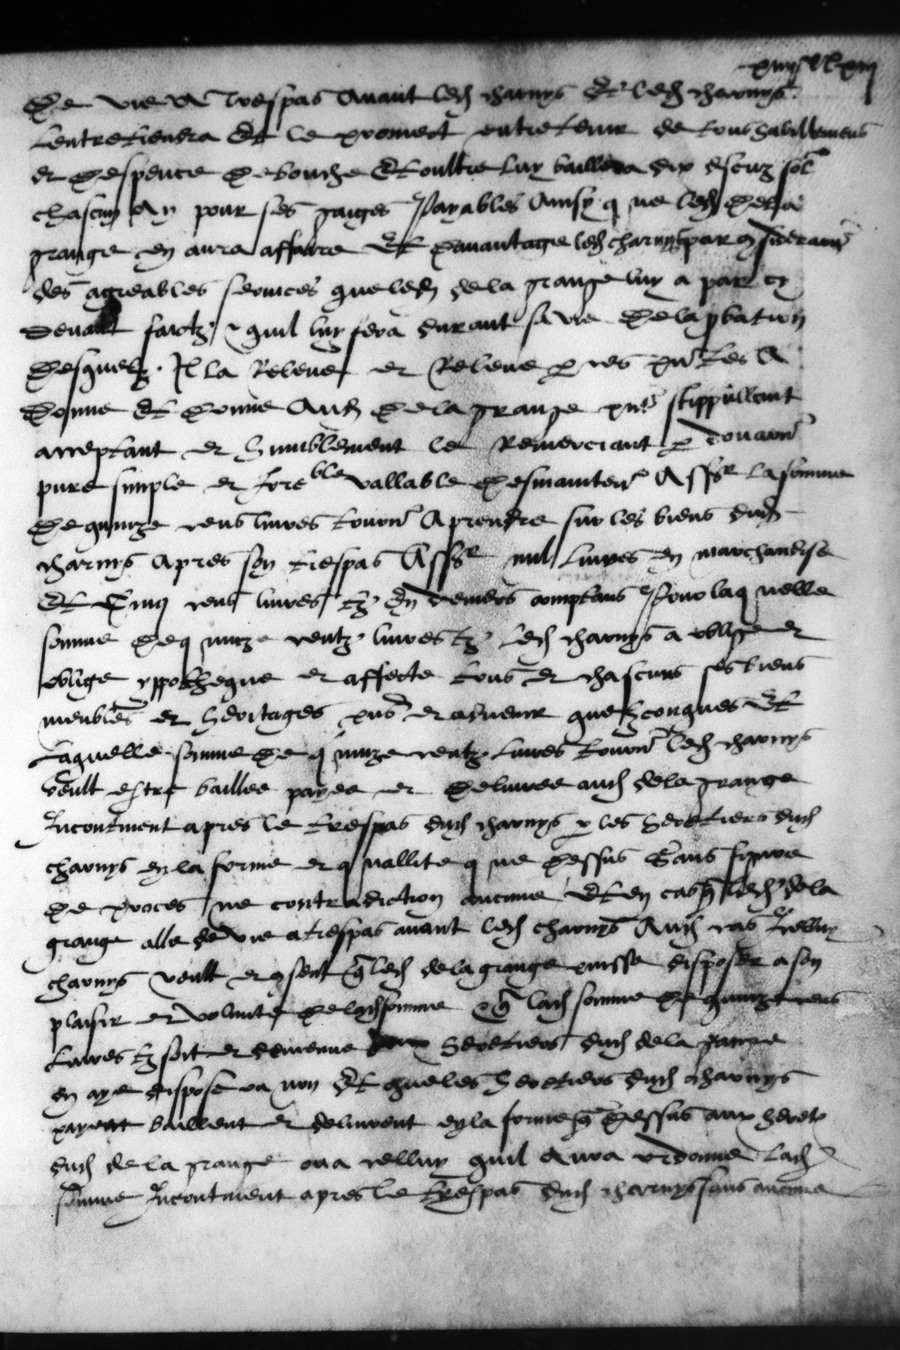 De vie a trespas avant led charnys Et led charnys
Lentretiendra Et le promect entretenir de tous habillemens
et despence de bouche Et oultre luy baillera dix escuz sol
chascun An pour ses gaiges Payables Ainsy que led de la
grange en aura affaire Et davantage led charnys par
des agreables services que led de la grange luy a par cy
devant faictz & quil luy fera durant sa vie de la pbation
desquelz Il la Releve et Releve p ces pntes A
Donne Et donne Aud de la grange pnt stippullant
acceptant et humblement le Remerciant p donaon
pure simple et Irre ble vallable desmaintent Assr la somme
de quinze cens livres tourn A prendre sur les biens dud
charnys Apres son trespas Assr mil livres en marchandise
Et Cinq cens livres tz En deniers comptans Pour laquelle
somme de quinze centz livres tz led charnys a oblige et
oblige yppotheque et affecte tous et chascuns ses biens
meubles et heritages pns et advenir quelzconques Et
Laquelle somme de quinze centz livres tourn led charnys
veult estre baillee payee et delivree aud de la grange
Incontinent apres le trespas dud charnys p les heritiers dud
charnys en la forme et quallite que dessus Sans figure
de proces ne contradiction aucune Et en cas q led de la
grange alle de vie a trespas avant led charnys Aud cas Icelluy
charnys veult et consent q led de la grange puisse disposer a son
plaisir et volunte de lad somme Et q lad somme de quinze cens
Livres tz soit et demeure heritiers dud de la grange
en aye dispose ou non Et que les heritiers dud charnys
payent baillent et delivrent en la forme q dessus aux herit
dud de la grange ou a celluy quil aura ordonne Lad
somme Incontinent apres le trespas dud charnys sans aucune